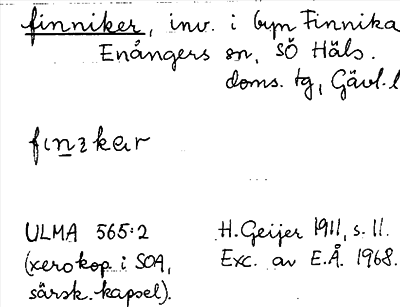 finniker, inv. i byn Finnika
Enångers sn, SÖ Häls.
doms. tg, Gävl. l
fınɜkɐr
ULMA 565:2
(xerokop i SOA,
särsk. kapsel).
H. Geijer 1911, s. 11.
Exc. av E.Å. 1968.